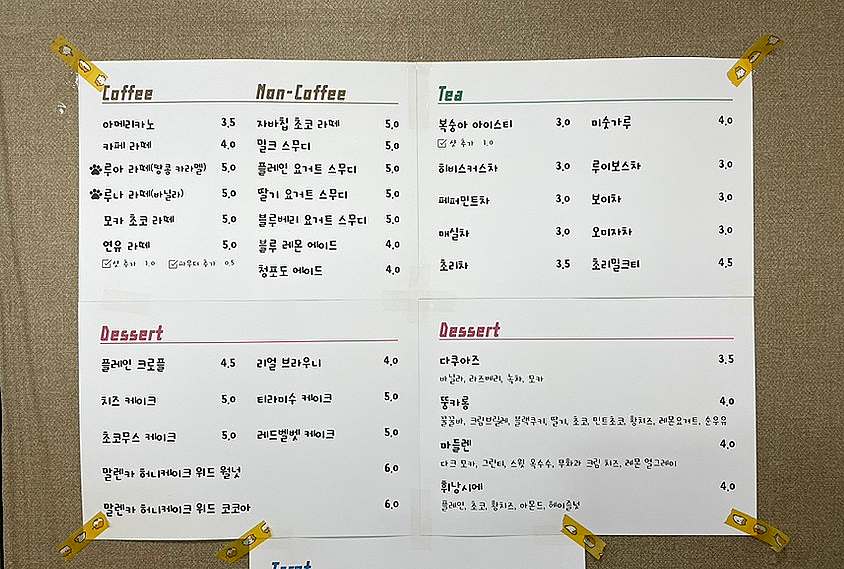 Coffee
아메리카노 3.5
카페 라떼 4.0
루아 라떼(땅콩 카라멜) 5.0
루나 라떼(바닐라) 5.0
모카 초코 라떼 5.0
연유 라떼 5.0
샷 추가 1.0 파우더 추가 0.5
Non-Coffee
자바칩 초코 라떼 5.0
밀크 스무디 5.0
플레인 요거트 스무디 5.0
딸기 요거트 스무디 5.0
블루베리 요거트 스무디 5.0
블루 레몬 에이드 4.0
청포도 에이드 4.0
Tea
복숭아 아이스티 3.0
샷 추가 1.0
히비스커스차 3.0
페퍼민트차 3.0
매실차 3.0
초리차 3.5
미숫가루 4.0
루이보스차 3.0
보이차 3.0
오미자차 3.0
초리밀크티 4.5
Dessert
플레인 크로플 4.5
치즈 케이크 5.0
초코무스 케이크 5.0
리얼 브라우니 4.0
티라미수 케이크 5.0
레드벨벳 케이크 5.0
말렌카 허니케이크 위드 월넛 6.0
말렌카 허니케이크 위드 코코아 6.0
Dessert
다쿠아즈 3.5
바닐라, 라즈베리, 녹차, 모카
뚱카롱 4.0
꿀꿀바, 크림브륄레, 블랙쿠키, 딸기, 초코, 민트초코, 황치즈, 레몬요거트, 순우유
마들렌 4.0
다크 모카, 그린티, 스윗 옥수수, 무화과 크림 치즈, 레몬 얼그레이
휘낭시에 4.0
플레인, 초코, 황치즈, 아몬드, 헤이즐넛